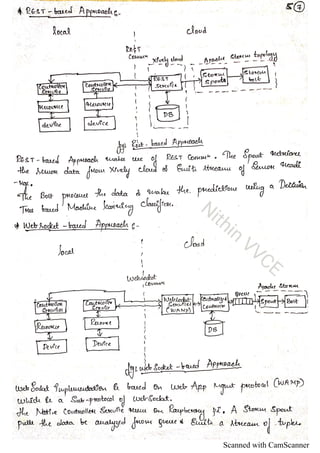 * REST - based Approaches.
local
cloud
REST
Comm
Xively cloud
Apache Storm topology
Controller Service
Controller Service
REST Service
Storm Spouts
Storm bolt
Resource
Resource
device
device
DB
fig Rest - based Approach
REST - based Approach make use of REST Commn. The Spout retrieves
the sensor data from Xively cloud & Emits streams of Sensor
The Bolt process the data & make the predictions using a Decision
Tree based Machine learning classifier.
* Web Socket - based Approach :-
local
cloud
Websocket
comm
Apache Storm
Controller Service
Controller Service
WebSocket Service (WAMP)
Centralized Controller
Queue
Spout
Bolt
Resource
Resource
Device
Device
DB
fig: web Socket - based Approach
Web Socket Implementation is based on Web App Mgmt protocol (WAMP)
which is a Sub-protocol of WebSocket.
The Native Controller Service runs on Raspberry pI. A Storm Spout
pulls the data to be analyzed from queue & Emits a stream of tuples.
Nithin VVCE
Scanned with CamScanner